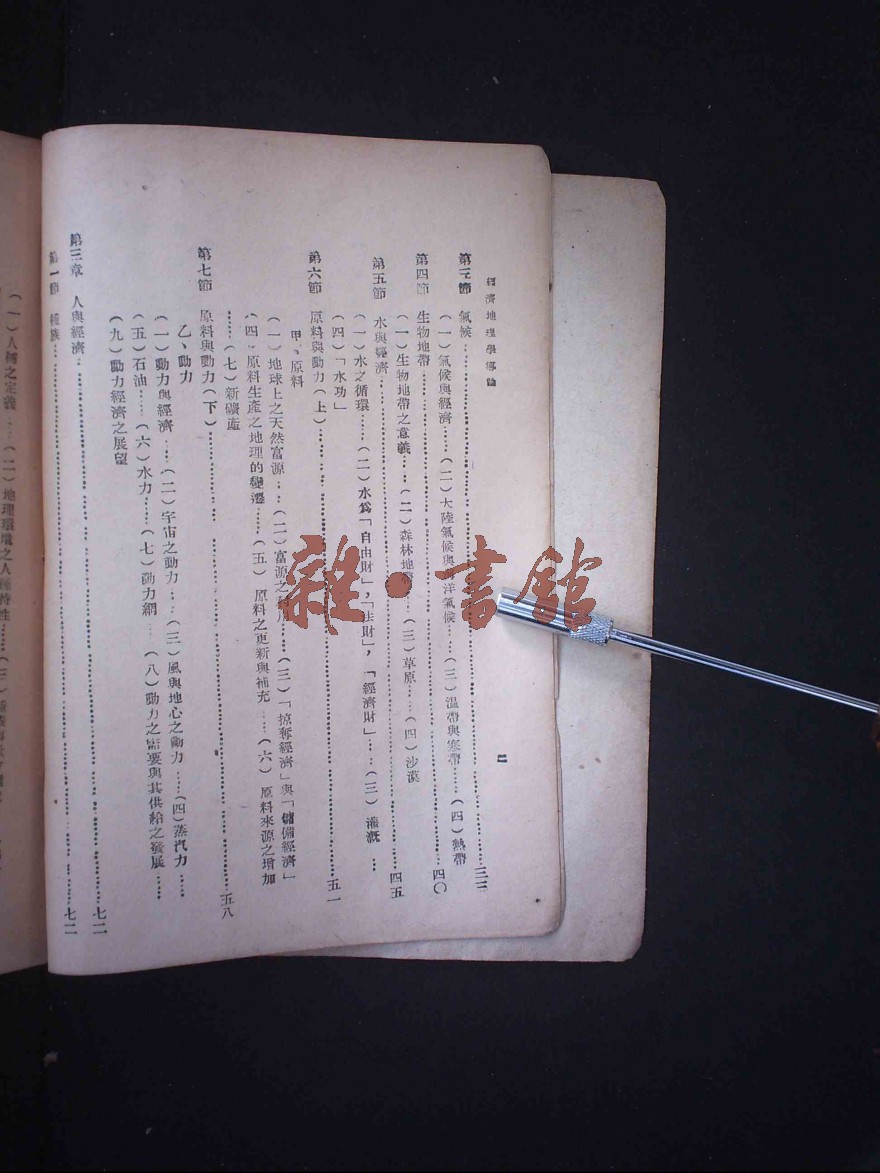 經濟地理學導論
二
第三節 氣候……三三
(一)氣候與經濟……(二)大陸氣候與海洋氣候……(三)溫帶與寒帶……(四)熱帶
第四節 生物地帶……四〇
(一)生物地帶之意義……(二)森林地帶……(三)草原……(四)沙漠
第五節 水與經濟……四五
(一)水之循環……(二)水為「自由財」,「法財」,「經濟財」……(三)灌漑…
(四)「水功」
第六節 原料與動力(上)……五一
甲、原料
(一)地球上之天然富源……(二)富源之利用……(三)「掠奪經濟」與「儲備經濟」
(四)原料生產之地理的變遷……(五)原料之更新與補充……(六)原料來源之增加
……(七)新礦產
第七節 原料與動力(下)……五八
乙、動力
(一)動力與經濟……(二)宇宙之動力……(三)風與地心之動力……(四)蒸汽力……
(五)石油……(六)水力……(七)動力網……(八)動力之需要與其供給之發展……
(九)動力經濟之展望
第三章 人與經濟……七二
第一節 種族……七二
(一)人種之定義……(二)地理環境之人種特性……(三)
雜·書館